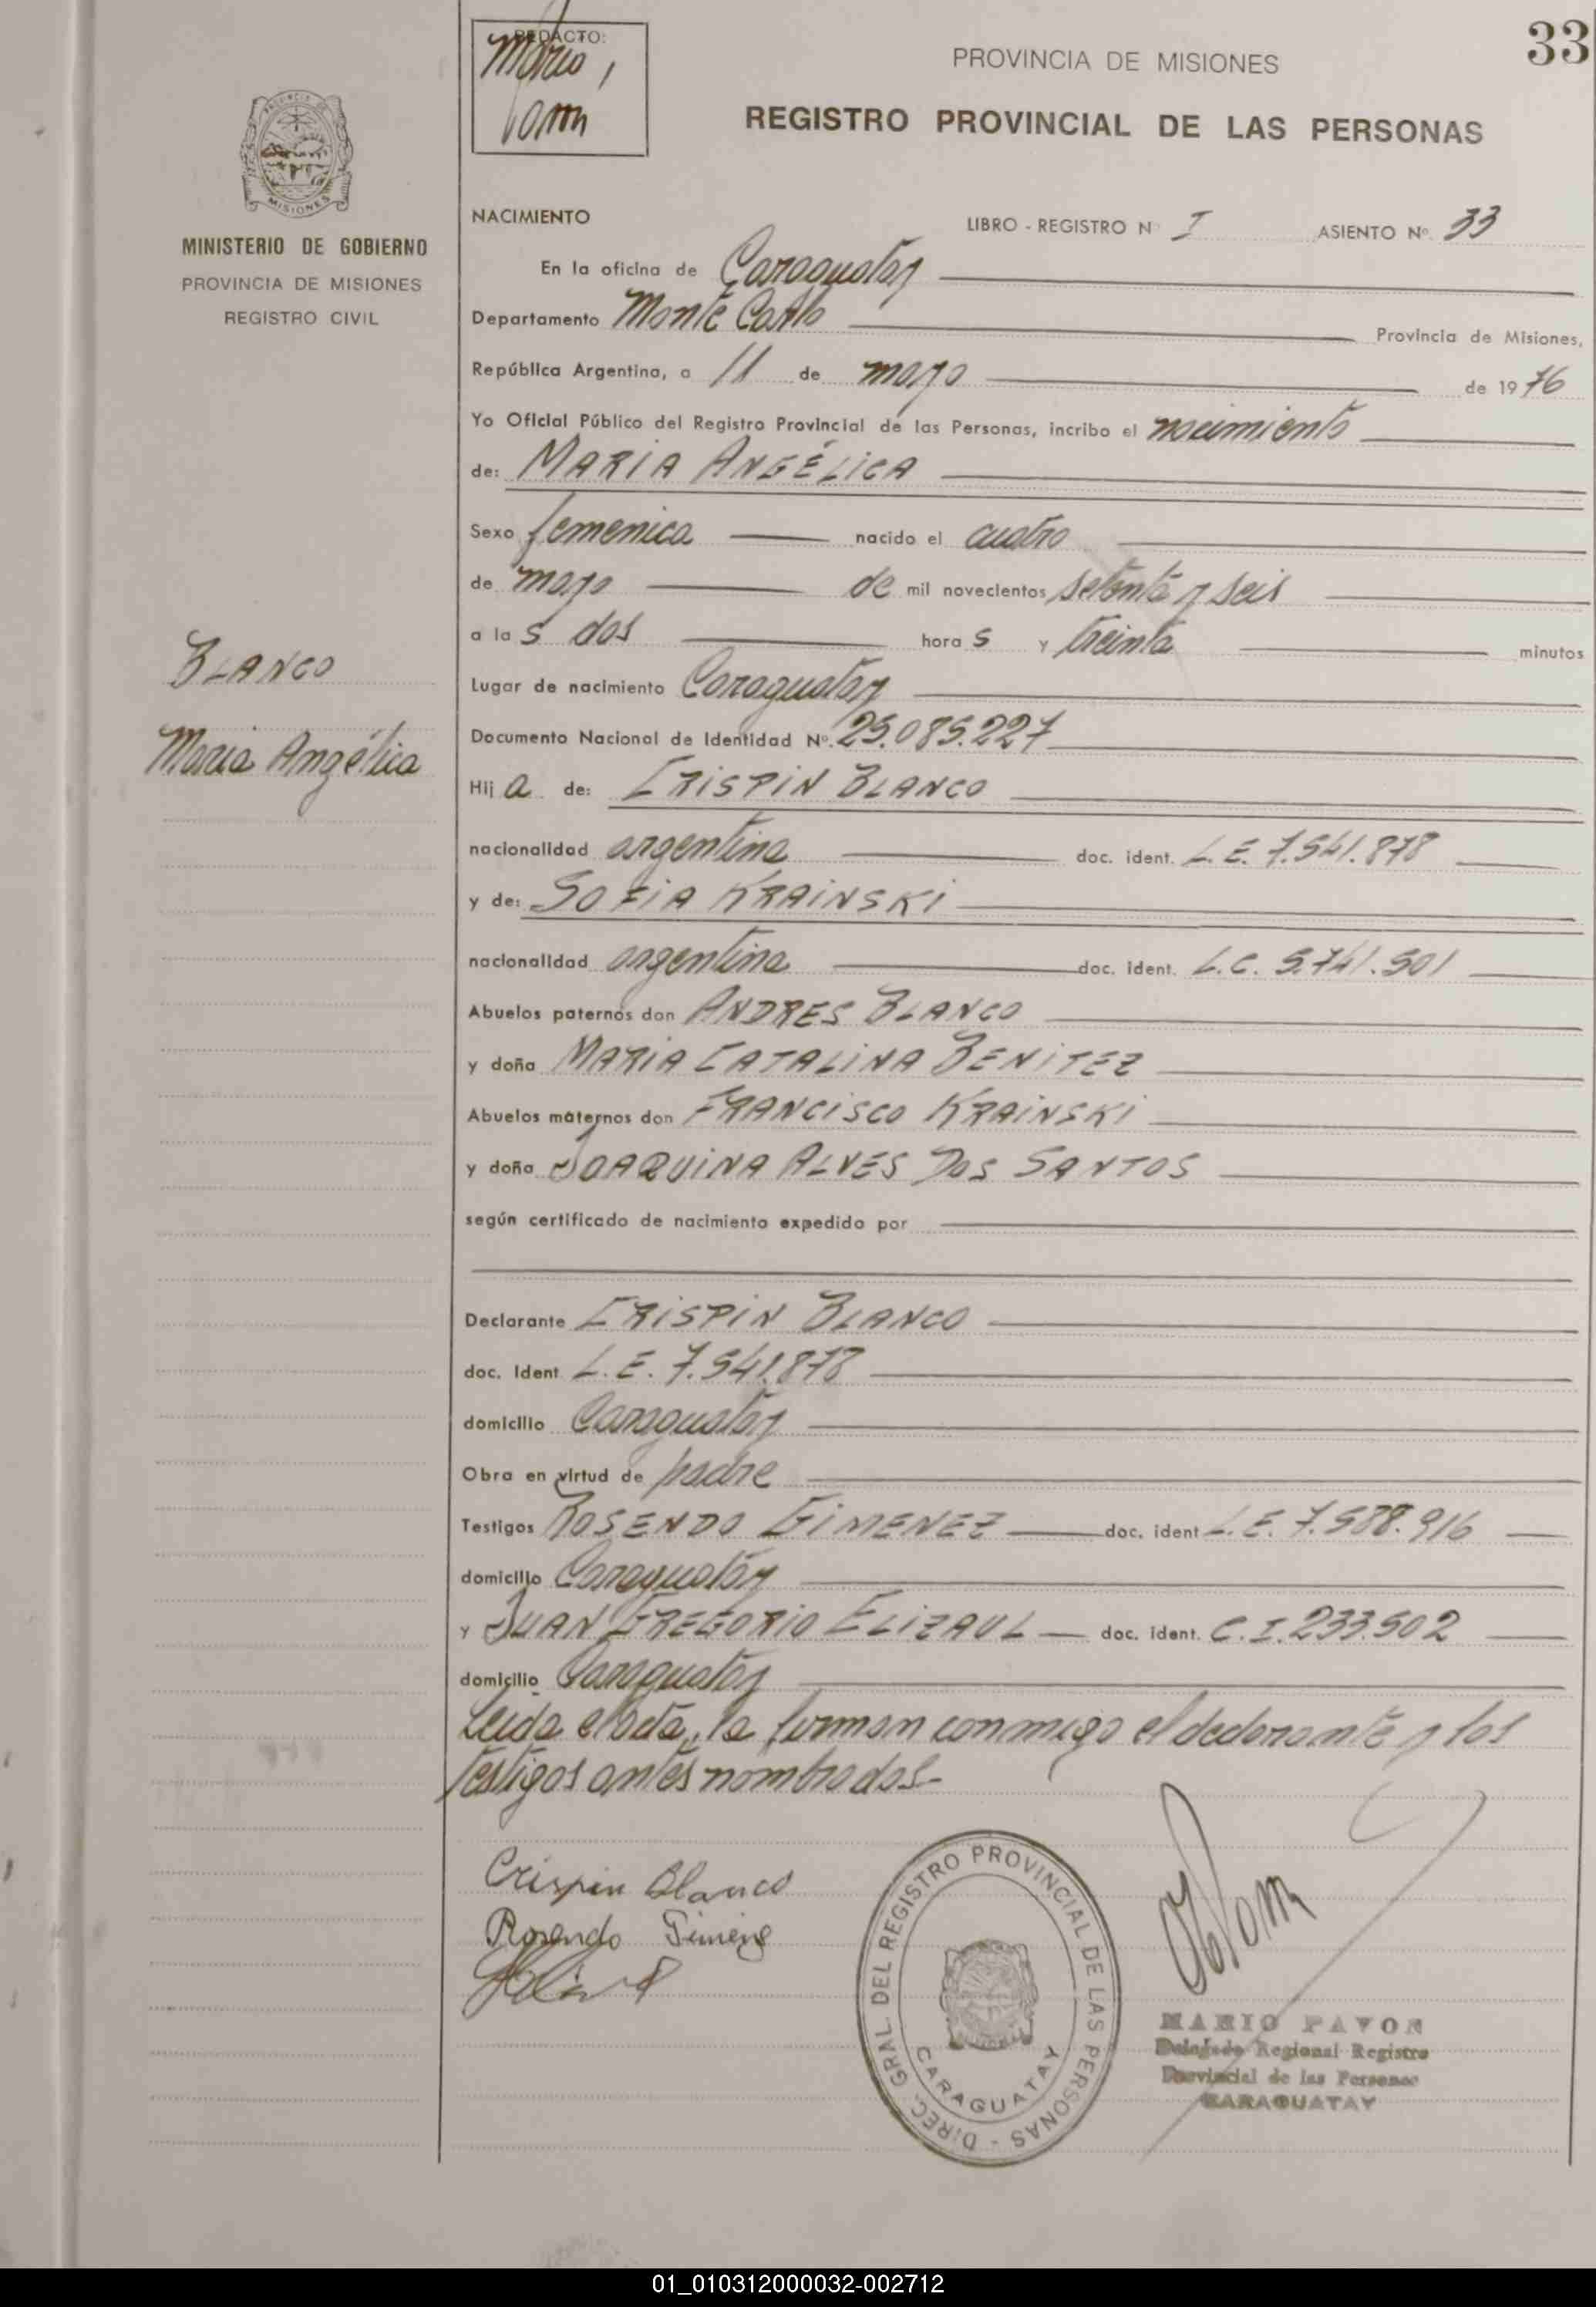 33
REDACTO:
Mario
PROVINCIA DE MISIONES
REGISTRO PROVINCIAL DE LAS PERSONAS
MISIONES
MINISTERIO DE GOBIERNO
PROVINCIA DE MISIONES
REGISTRO CIVIL
NACIMIENTO
LIBRO - REGISTRO Nº I ASIENTO Nº. 33
En la oficina de Caraguatay
Departamento Monte Carlo Provincia de Misiones,
República Argentina, a 11 de mayo de 1976
Yo Oficial Público del Registro Provincial de las Personas, incribo el nacimiento
de: MARIA ANGÉLICA
Sexo femenica nacido el cuatro
de mayo de mil novecientos setenta y seis
a las dos horas y treinta minutos
BLANCO
Lugar de nacimiento Caraguatay
Maria Angélica
Documento Nacional de Identidad Nº. 25.085.227
Hija de: CRISPIN BLANCO
nacionalidad argentina doc. ident. L.E. 7.541.878
y de: SOFIA KRAINSKI
nacionalidad argentina doc. ident. L.C. 5.741.501
Abuelos paternos don ANDRES BLANCO
y doña MARIA CATALINA BENITEZ
Abuelos maternos don FRANCISCO KRAINSKI
y doña JOAQUINA ALVES DOS SANTOS
según certificado de nacimiento expedido por
Declarante CRISPIN BLANCO
doc. Ident L.E. 7.541.878
domicilio Caraguatay
Obra en virtud de padre
Testigos ROSENDO GIMENEZ doc. ident L.E. 7.588.916
domicilio Caraguatay
y JUAN GREGORIO ELIZAUL doc. ident. C.I. 233.502
domicilio Caraguatay
Leida el acta, la forman conmigo el declarante y los
testigos antes nombrados-
Crispin Blanco
Rosendo Gimenez
DIREC. GRAL. DEL REGISTRO PROVINCIAL DE LAS PERSONAS -
CARAGUATAY
MARIO PAVON
Delegado Regional Registro
Provincial de las Personas
CARAGUATAY
01_010312000032-002712